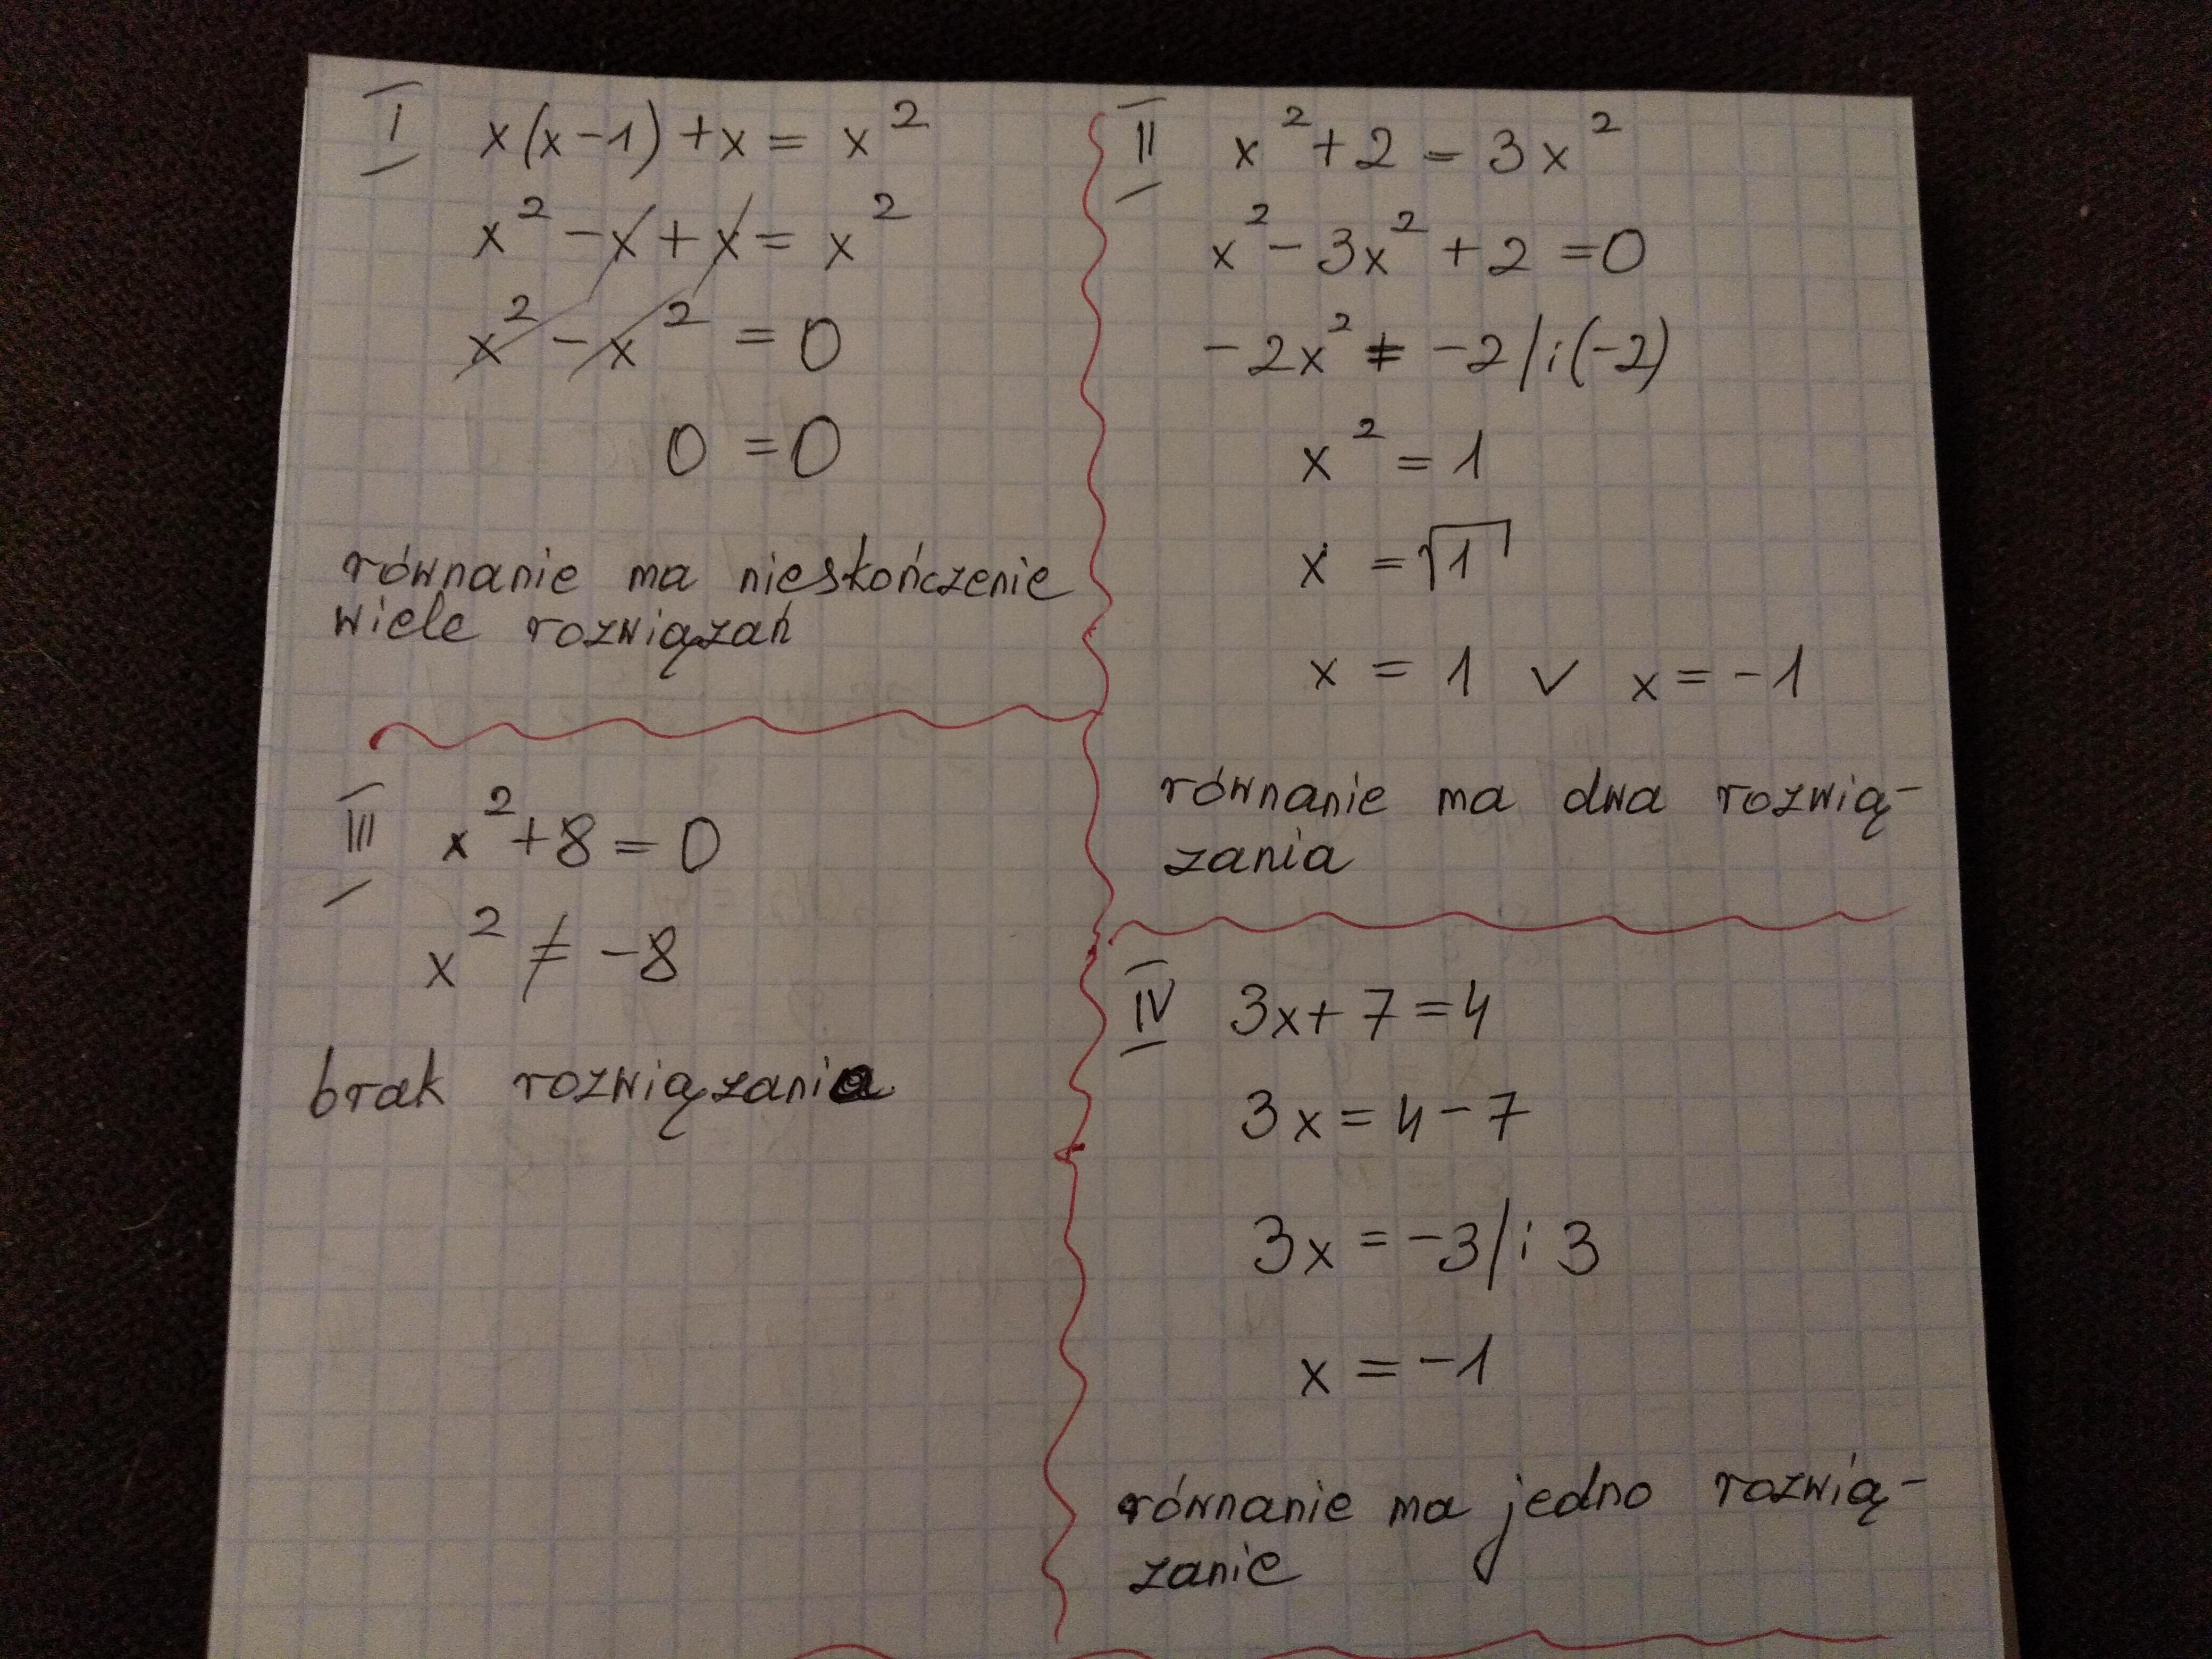 I x(x-1)+x = x²
x² - x + x = x²
x² - x² = 0
0 = 0
równanie ma nieskończenie
wiele rozwiązań
II x²+2 = 3x²
x² - 3x² + 2 = 0
-2x² = -2 /:(-2)
x² = 1
x = √1
x = 1 ∨ x = -1
równanie ma dwa rozwią-
zania
III x²+8 = 0
x² ≠ -8
brak rozwiązania
IV 3x+7 = 4
3x = 4-7
3x = -3 /:3
x = -1
równanie ma jedno rozwią-
zanie